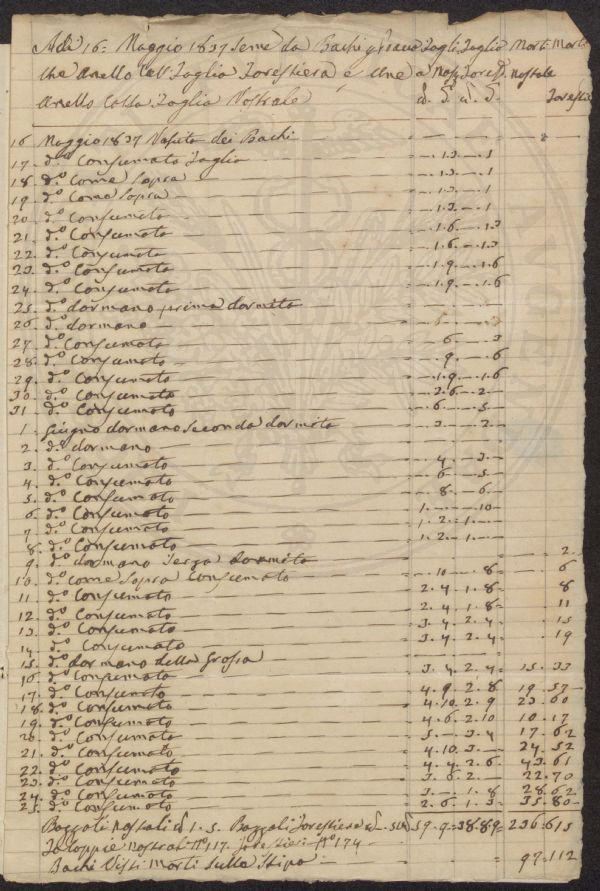 Adi 16 = Maggio 1837 Seme da Bachi Foglia Foglia Morti Morti
che anello dell' Foglia Forestiera, e une a Nost. Forest. Nostale
anello della Foglia Nostrale Foresti
16 Maggio 1837 Nascita dei Bachi
17. d.º Consumato Foglia - .1.3. - .1
18. d.º Come Sopra - .1.3. - .1
19. d.º Come Sopra - .1.3. - .1
20. d.º Consumato - .1.3. - .1
21. d.º Consumato - .1.6. - .1.3
22. d.º Consumato - .1.6. - .1.3
23. d.º Consumato - .1.9. - .1.6
24. d.º Consumato - .1.9. - .1.6
25. d.º dormano prima dormita
26. d.º dormano
27. d.º Consumato - .6. - .3
28. d.º Consumato - .9. - .6
29. d.º Consumato - .1.9. - .1.6
30. d.º Consumato - .2.6. - 2. -
31. d.º Consumato - .6. - .5. -
1. Giugno dormano Seconda dormita - .3. - 2. -
2. d.º dormano
3. d.º Consumato - .4. - 3. -
4. d.º Consumato - .6. - 5. -
5. d.º Consumato - .8. - 6. -
6. d.º Consumato 1. - . - .10 -
7. d.º Consumato 1. 2. 1. -
8. d.º Consumato 1. 2. 1. -
9. d.º dormano Terza dormita 2.
10. d.º come Sopra Consumato - .10. - .8 6
11. d.º Consumato 2. 4. 1. 8 8
12. d.º Consumato 2. 4. 1. 8 11
13. d.º Consumato 3. 4. 2. 4 15
14 d.º Consumato 3. 4. 2. 4 19
15. d.º dormano della Grossa
16. d.º Consumato 3. 4. 2. 4 15. 33
17. d.º Consumato 4. 9. 2. 8 19. 57
18. d.º Consumato 4. 10. 2. 9 23. 60
19. d.º Consumato 4. 6. 2. 10 10. 17
20. d.º Consumato 5. - 3. 4 17. 62
21. d.º Consumato 4. 10. 3. - 24. 52
22. d.º Consumato 4. 4. 2. 6 43. 61
23. d.º Consumato 3. 6. 2. - 22. 70
24. d.º Consumato 3. - . 1. 8 28. 62
25. d.º Consumato 2. 6. 1. 3 35. 80
Bozzoli Nostrali 1. 5. Bozzoli Forestiera 59. 9. 38. 89 236. 615
Faloppie Nostral Nº 117. forestier. Nº 174
Bachi Visti Morti Sulla Stipa 97. 112